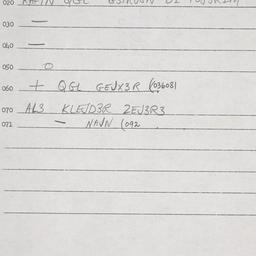 020
030 —
040 —
050 O
060 + QGL GEJX3R (036081
070 AL3 KLEJD3R 2EJ3R3
071 — NAJN (092